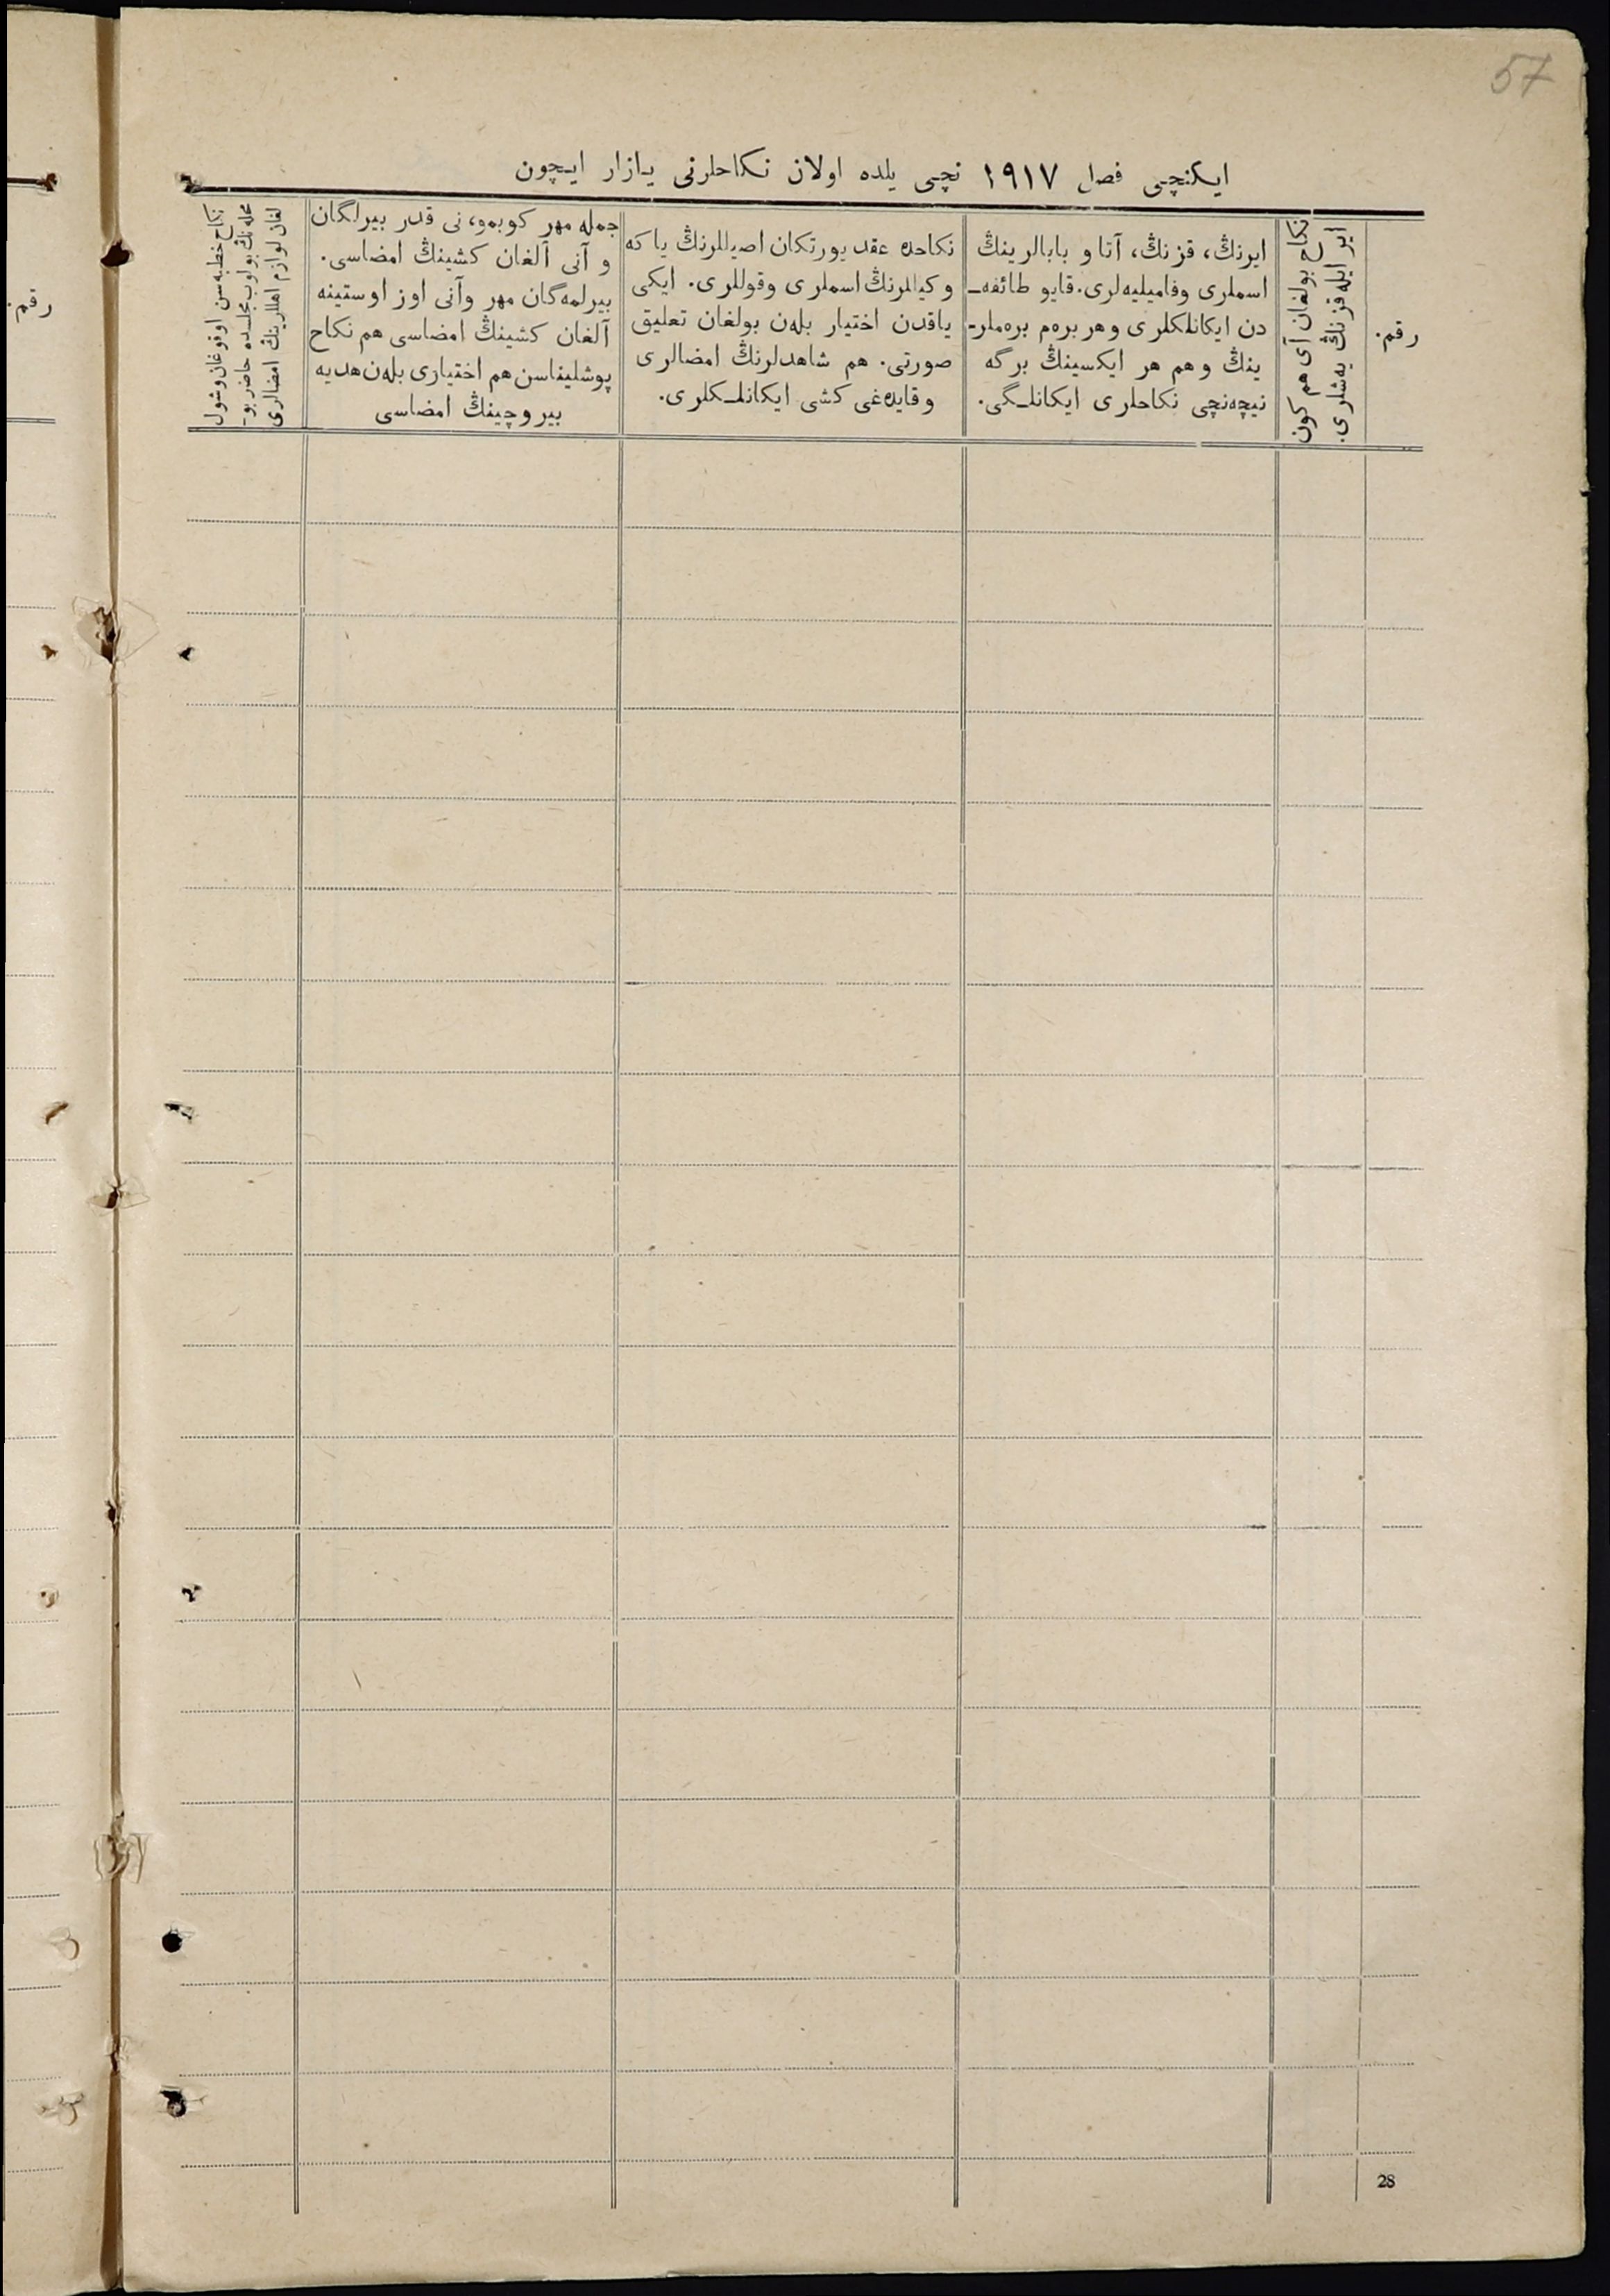 57
ایکنچی فصل ۱۹۱۷ نچی یلده اولان نکاحلرنی یازار ایچون
رقم.
نکاح بولغان آی هم کون
ایر ایله قزنڭ یەشلری.
ایرنڭ، قزنڭ، آتا و بابالرینڭ
اسملری وفامیلیەلری. قایو طائفه‌ـ
دن ایکانلکلری وهر برەم برەملر-
ینڭ وهم هر ایکسینڭ برگه
نیچەنچی نکاحلری ایکانلـگی.
نکاحده عقد یورتکان اصیللرنڭ یا که
وکیللرنڭ اسملری وقوللری. ایکی
یاقدن اختیار بلەن بولغان تعلیق
صورتی. هم شاهدلرنڭ امضالری
وقایدەغی کشی ایکانلـکلری.
جمله مهر کوبمو، نی قدر بیرلگان
و آنی آلغان کشینڭ امضاسی.
بیرلمەگان مهر وآنی اوز اوستینه
آلغان کشینڭ امضاسی هم نکاح
پوشلیناسن هم اختیاری بلەن هدیه
بیروچینڭ امضاسی
نکاح خطبەسن اوقوغان وشول
محلەنڭ بولوب مجلـسده حاضر بو-
لغان لوازم اهللرینڭ امضالری
رقم.
28